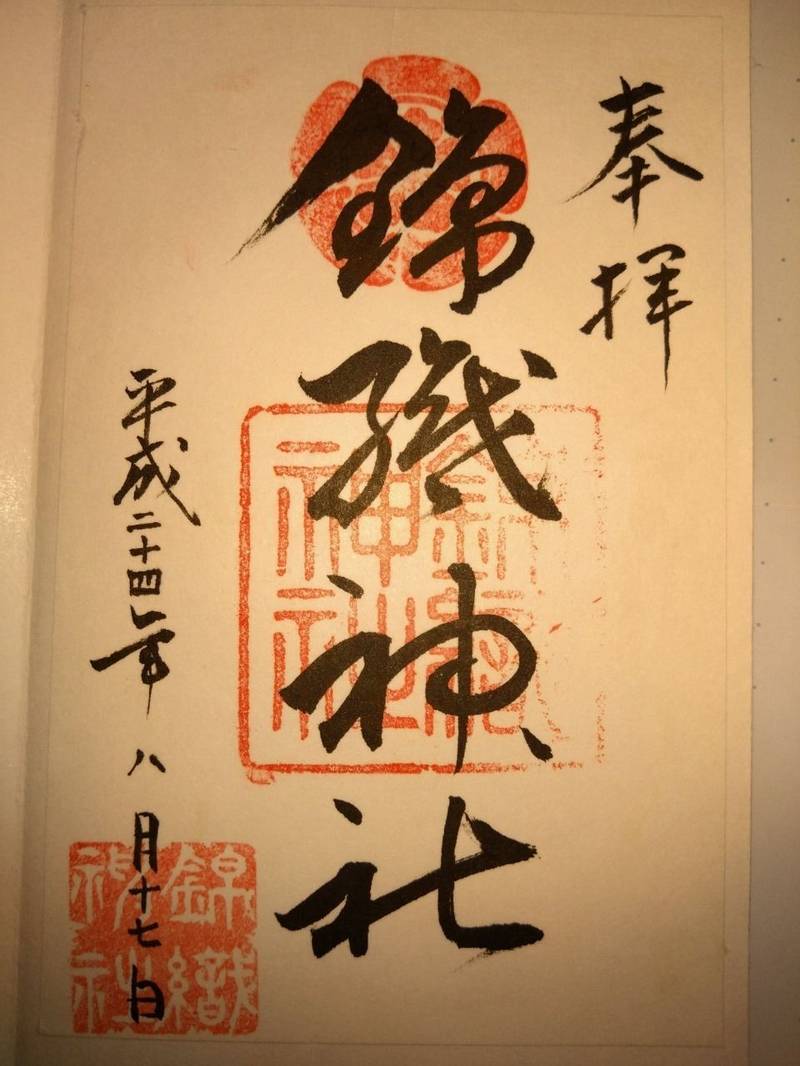 奉拝
錦織神社
平成二十四年八月十七日
錦織
神社
錦織
神社